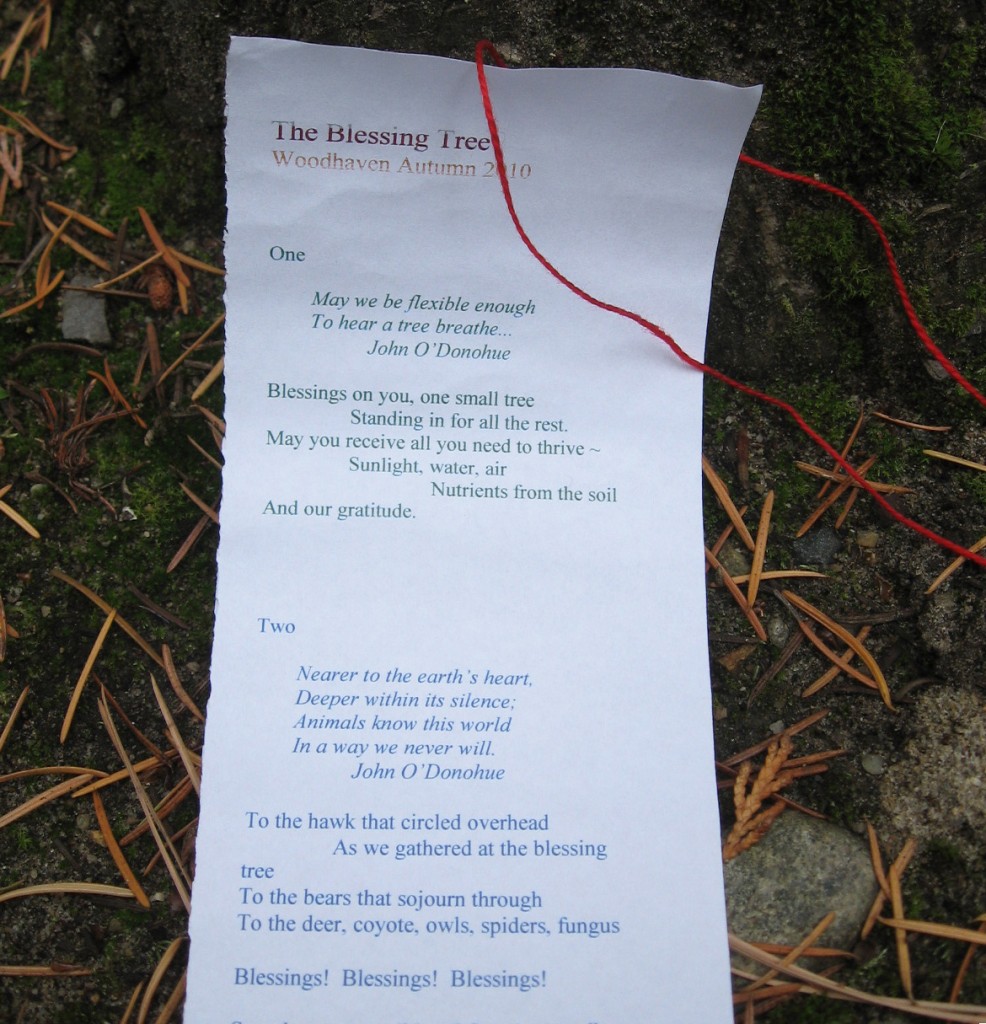 The Blessing Tree
Woodhaven Autumn 2010
One
May we be flexible enough
To hear a tree breathe...
John O'Donohue
Blessings on you, one small tree
Standing in for all the rest.
May you receive all you need to thrive ~
Sunlight, water, air
Nutrients from the soil
And our gratitude.
Two
Nearer to the earth's heart,
Deeper within its silence;
Animals know this world
In a way we never will.
John O'Donohue
To the hawk that circled overhead
As we gathered at the blessing
tree
To the bears that sojourn through
To the deer, coyote, owls, spiders, fungus
Blessings! Blessings! Blessings!